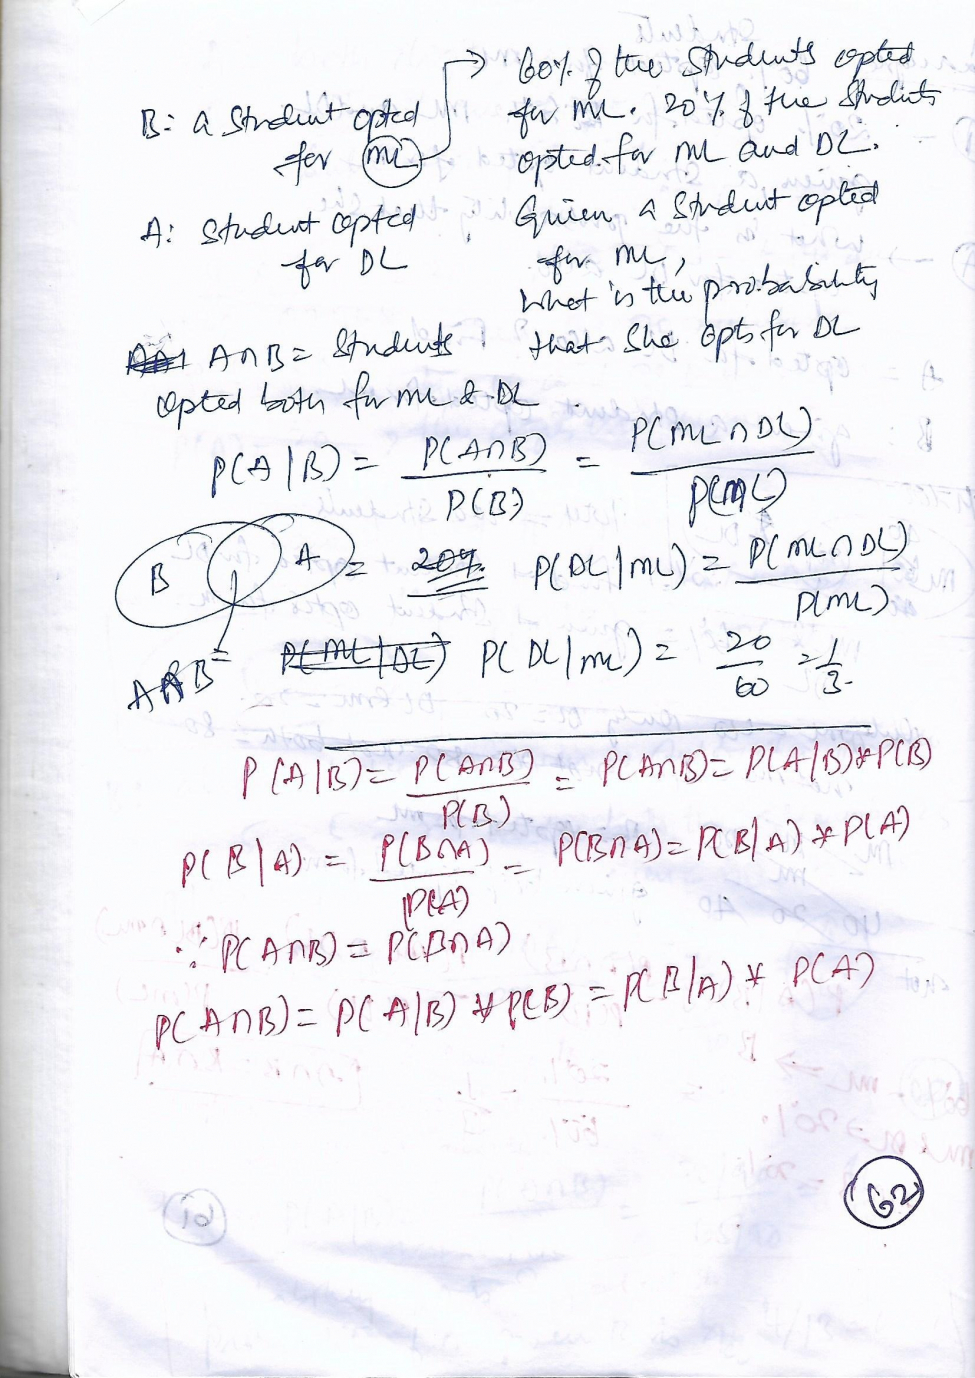 60% of the Students opted
for ML. 20% of the Students
opted for ML and DL.
Given a Student opted
for ML,
What is the probability
that She opts for DL
B: a Student opted
for ML
A: Student opted
for DL
A∩B = Students
opted both for ML & DL
P(A|B) = P(A∩B) / P(B) = P(ML∩DL) / P(ML)
B A = 20% P(DL|ML) = P(ML∩DL) / P(ML)
A∩B = P(ML|DL) P(DL|ML) = 20/60 = 1/3.
P(A|B) = P(A∩B) / P(B) = P(A∩B) = P(A|B)*P(B)
P(B|A) = P(B∩A) / P(A) = P(B∩A) = P(B|A) * P(A)
∵ P(A∩B) = P(B∩A)
P(A∩B) = P(A|B) * P(B) = P(B|A) * P(A)
62
61